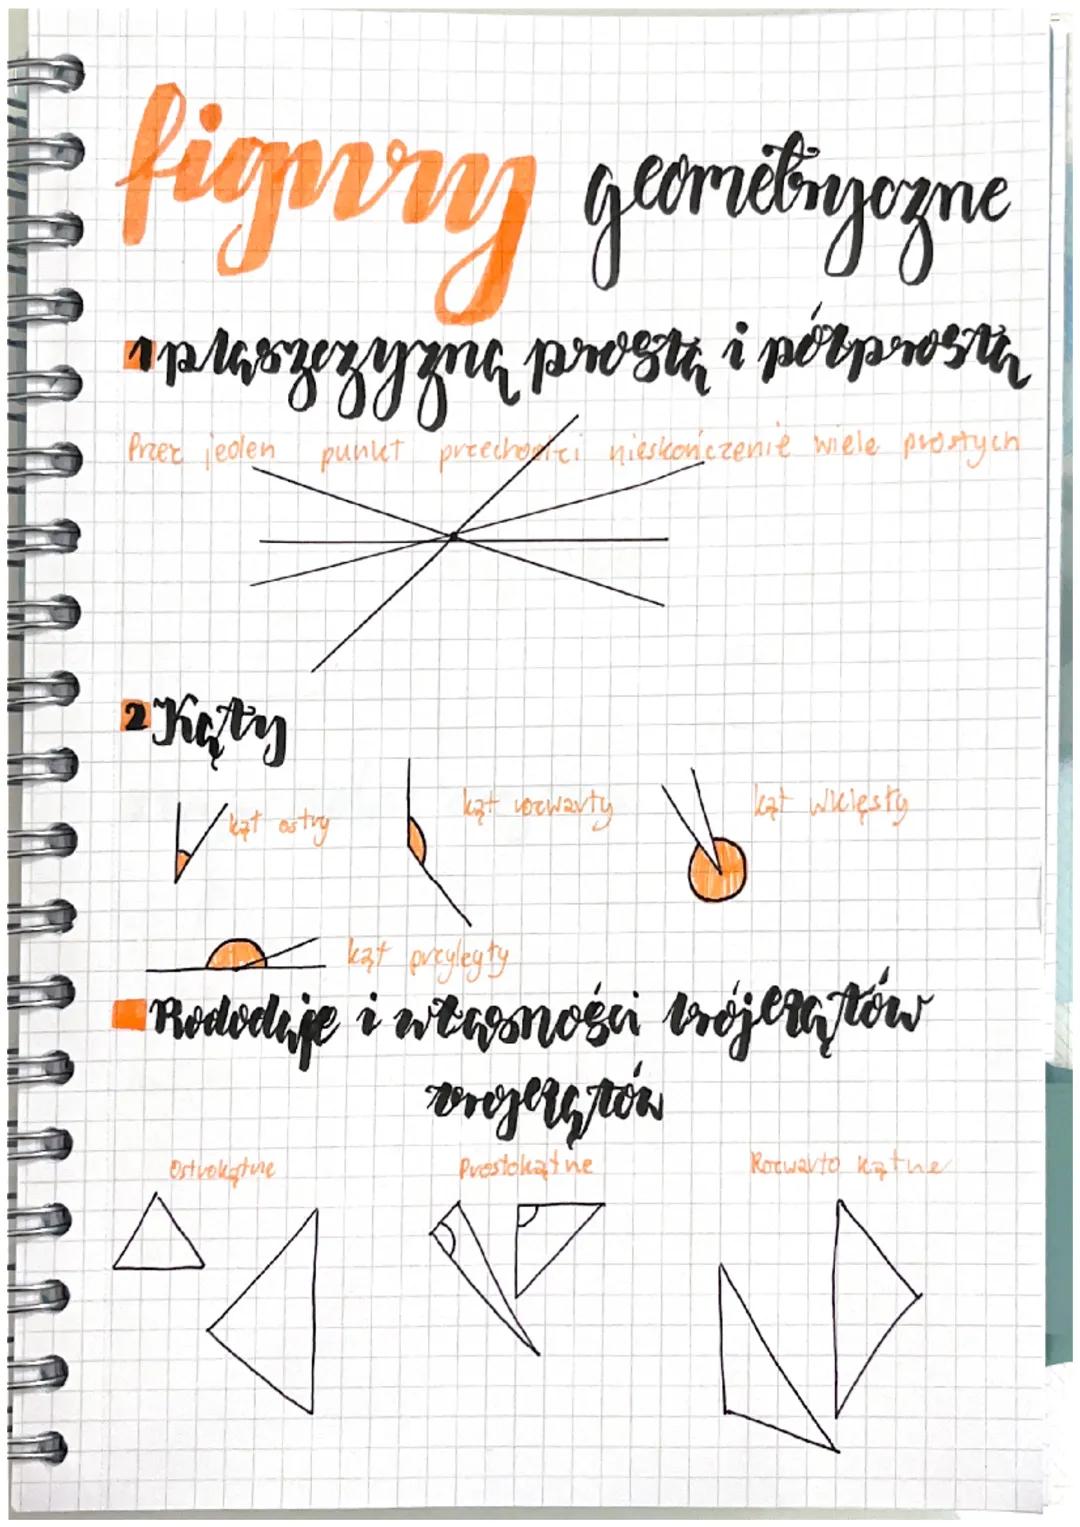 figury geometryczne
1 płaszczyzną prostą i półprostą
Przez jeden punkt przechodzi nieskończenie wiele prostych
2 Kąty
kąt ostry
kąt rozwarty
kąt wklęsły
kąt przyległy
Rododaje i własności trójkątów
trojkątów
Ostrokątne
Prostokątne
Rozwarto kątne